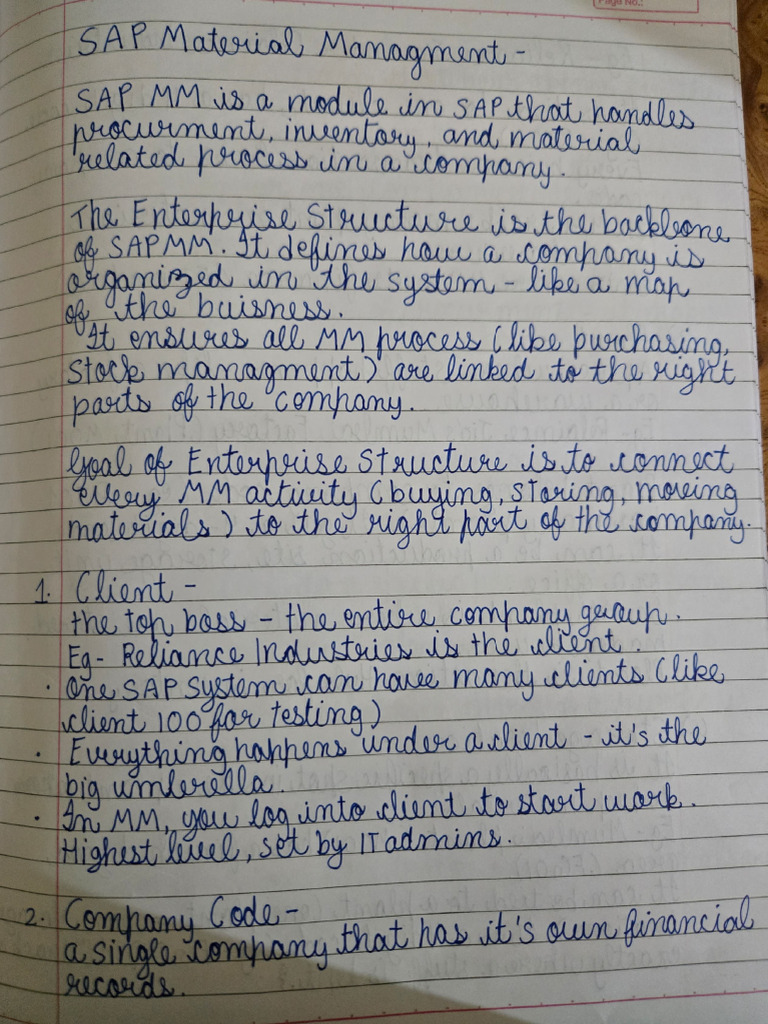 Page No.:
SAP Material Managment -
SAP MM is a module in SAP that handles
procurment, inventory, and material
related process in a company.
The Enterprise Structure is the backbone
of SAP MM. It defines how a company is
organized in the system - like a map
of the buisness.
It ensures all MM process (like purchasing,
stock managment) are linked to the right
parts of the company.
Goal of Enterprise Structure is to connect
every MM activity (buying, storing, moving
materials) to the right part of the company.
1. Client -
the top boss - the entire company group.
Eg- Reliance Industries is the client.
· One SAP system can have many clients (like
client 100 for testing)
· Everything happens under a client - it's the
big umbrella.
· In MM, you log into client to start work.
Highest level, set by IT admins.
2. Company Code -
a single company that has it's own financial
records.